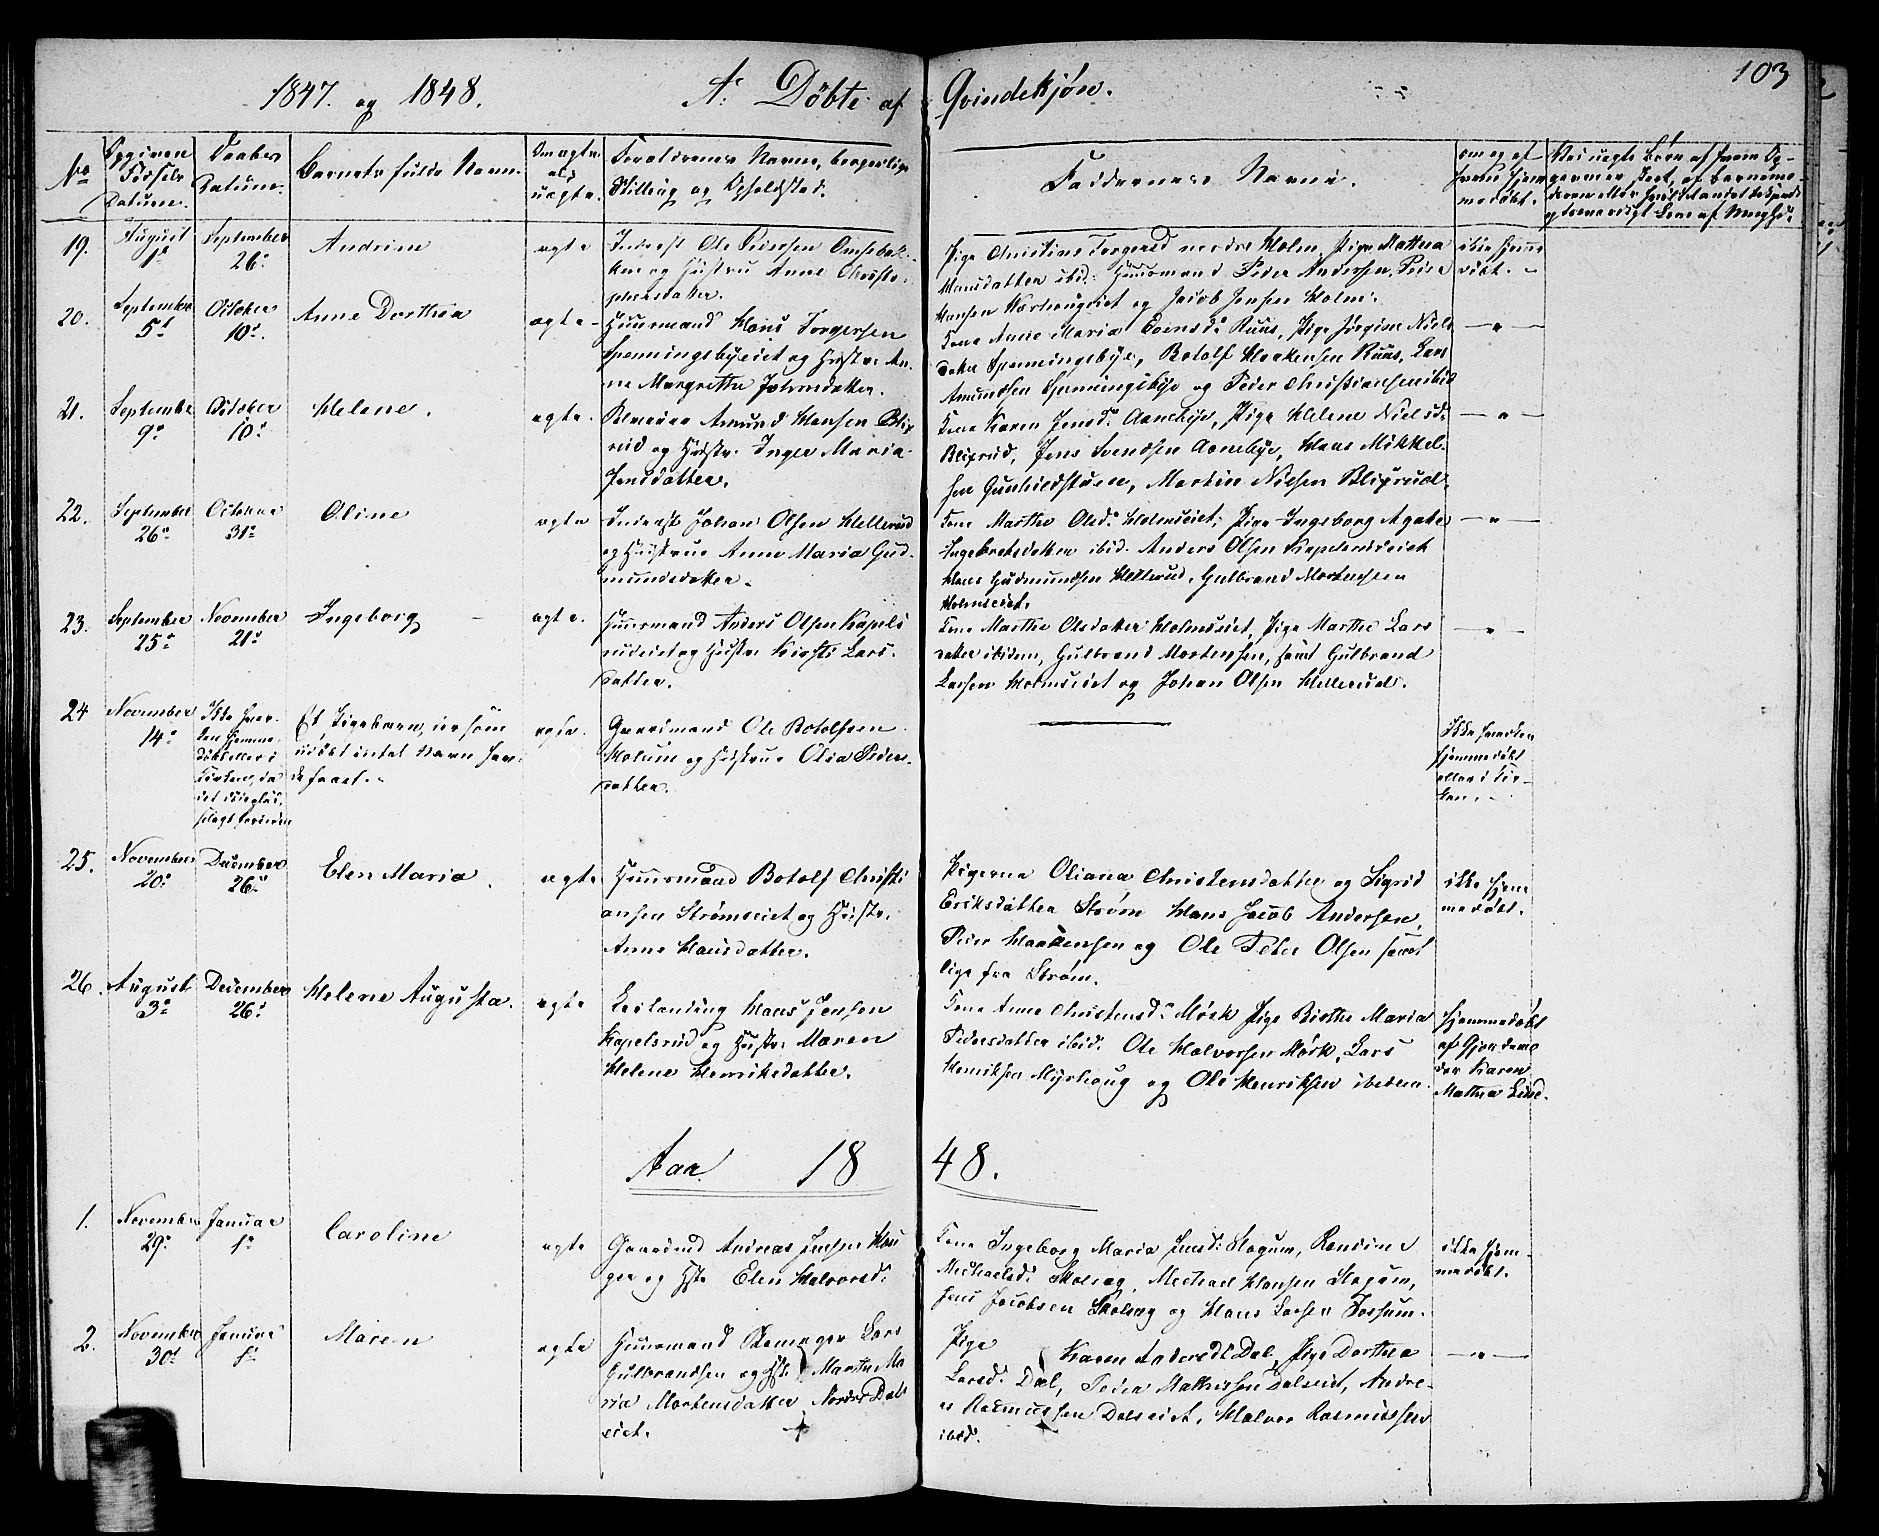 103
1847. og 1848. A: Döbte af Qvindekjøn.
No
Opgiven Fødsels Datum.
Daabs Datum.
Barnets fulde Navn.
Om ægte el. uægte.
Forældrenes Navne, borgerlige
Stilling og Opholdsted.
Faddernes Navne.
19. August 1ste September 26. Andrine ægte
Inderst Ole Pedersen
og Hustru Anne Christo-
phersdatter.
Pige Christine Torgersd nordre Holm, Pige Mathea
Hansdatter ibid: Huusmand Peder Andersen, Peder
Hansen og Jacob Jensen Holm.
ikke hjemme
døbt.
20. September 5t October 10d. Anne Dorthea ægte
Huusmand Hans Torgersen
Spenningsbyeiet og Hustr: An-
ne Margrethe Johnsdatter.
Kone Anne Maria Evensd: Ruus, Pige Jørgine Niels
datter Spenningsbye, Botolf Haakensen Ruus, Lars
Amundsen Spenningsbye og Peder Christiansen ibid
— " —
21. September 9. October 10. Helene. ægte.
Amund Hansen Blix
rud og Hustr. Inger Maria
Jensdatter.
Kone Karen Jensd: Aanebye, Pige Helene Nielsd:
Blixrud, Jens Svendsen Aanebye, Hans Mikkel-
sen Gunhildstuen, Martin Nielsen Blixrud.
— " —
22. September 26. October 31. Oline ægte
Inderst Johan Olsen Hellerud
og Hustrue Anne Maria Gud-
mundsdatter.
Kone Marthe Olsd: Holmseiet; Pige Ingeborg Agate
Ingebretsdatter ibid. Anders Olsen Kapelsrudeiet
Hans Gudmundsen Hellerud, Gulbrand Mortensen
Holmseiet.
— " —
23. September 25. November 21. Ingeborg ægte.
Huusmand Anders Olsen Kapels
rudeiet og Hustr Kirsti Lars-
datter.
Kone Marthe Olsdatter Holmseiet, Pige Marthe Lars
datter ibidem, Gulbrand Mortensen, samt Gulbrand
Larsen Holmseiet og Johan Olsen Hellerud.
— " —
24 November 14. Ikke hver-
ken hjemme-
døbt eller i
Kirken, da
det
Et Pigebarn, der som
udøbt intet Navn hav-
de faaet.
ægte.
Gaardmand Ole Botolfsen
Holum og Hustrue Olia Peders-
datter.
Ikke hverken
hjemmedøbt
eller i Kir-
ken.
25. November 20. December 26. Elen Maria ægte
Huusmand Botolf Christi
ansen Strømseiet og Hustr.
Anne Hansdatter.
Pigerne Oliana Christensdatter og Sigrid
Eriksdatter Strøm Hans Jacob Andersen,
Peder Haakensen og Ole Peter Olsen samt
lige fra Strøm.
ikke hjem
medøbt.
26. August 3. December 26. Helene Augusta. ægte
Hans Jensen
Kapelsrud og Hustr: Maren
Helene Henriksdatter.
Kone Anne Christensd: Mørk Pige Birthe Maria
Pedersdatter ibid: Ole Halvorsen Mørk, Lars
Henriksen Myrhaug og Ole Henriksen ibidem
hjemmedøbt
af Gjordemo
der Karen
Mathea Lund.
Aar 1848.
1. November 29. Januar 1. Caroline ægte
Gaardmd Andreas Jensen Hau
ger og Hst: Elen Halvorsd:
Kone Ingeborg Maria Jensd: Slogum, Randine
Michaelsd: Michael Hansen Slogum,
Jens Jacobsen og Hans Larsen Fossum.
ikke hjem-
medøbt.
2. November 30t Januar 1. Maren ægte
Huusmand Lars
Gulbrandsen og Hst: Marthe Ma
ria Mortensdatter Nordre Dals
eiet.
Pige Karen Andersd: Dal, Pige Dorthea
Larsd: Dal, Peder Mathissen Dalseiet, Andre-
as Rasmussen Dalseiet, Halvor Rasmussen
ibid.
— " —